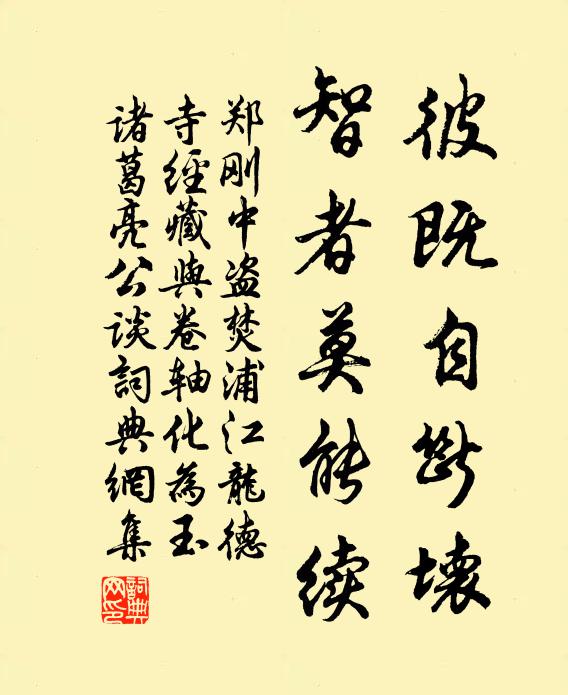 彼既自断壞
智者莫能续
郑刚中盗焚浦江龍德
寺經藏與卷轴化為玉
诸葛亮公谈詞典網集
詞典
网印